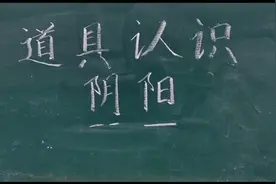 道具认识
阴阳